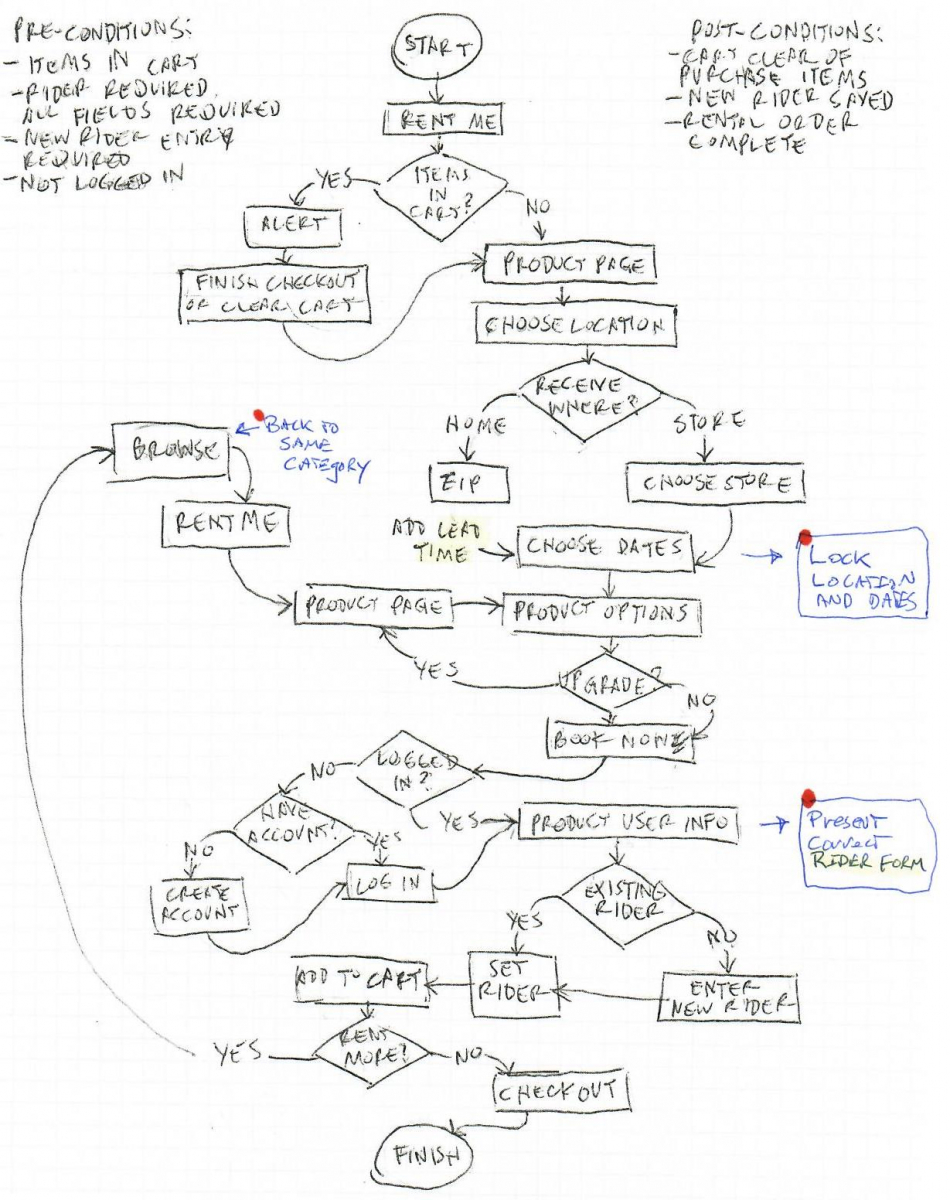 PRE-CONDITIONS:
- ITEMS IN CART
- RIDER REQUIRED,
ALL FIELDS REQUIRED
- NEW RIDER ENTRY
REQUIRED
- NOT LOGGED IN
POST-CONDITIONS:
- CART CLEAR OF
PURCHASE ITEMS
- NEW RIDER SAVED
- RENTAL ORDER
COMPLETE
START
RENT ME
ITEMS
IN
CART?
YES
NO
ALERT
FINISH CHECKOUT
OR CLEAR CART
PRODUCT PAGE
CHOOSE LOCATION
RECEIVE
WHERE?
HOME
STORE
ZIP
CHOOSE STORE
BROWSE
BACK TO
SAME
CATEGORY
RENT ME
ADD LEAD
TIME
CHOOSE DATES
LOCK
LOCATION
AND DATES
PRODUCT PAGE
PRODUCT OPTIONS
YES
UPGRADE?
NO
BOOK NOW
LOGGED
IN?
NO
YES
HAVE
ACCOUNT?
NO
YES
CREATE
ACCOUNT
LOG IN
PRODUCT USER INFO
Present
Correct
RIDER FORM
EXISTING
RIDER
YES
NO
SET
RIDER
ENTER
NEW RIDER
ADD TO CART
RENT
MORE?
YES
NO
CHECKOUT
FINISH